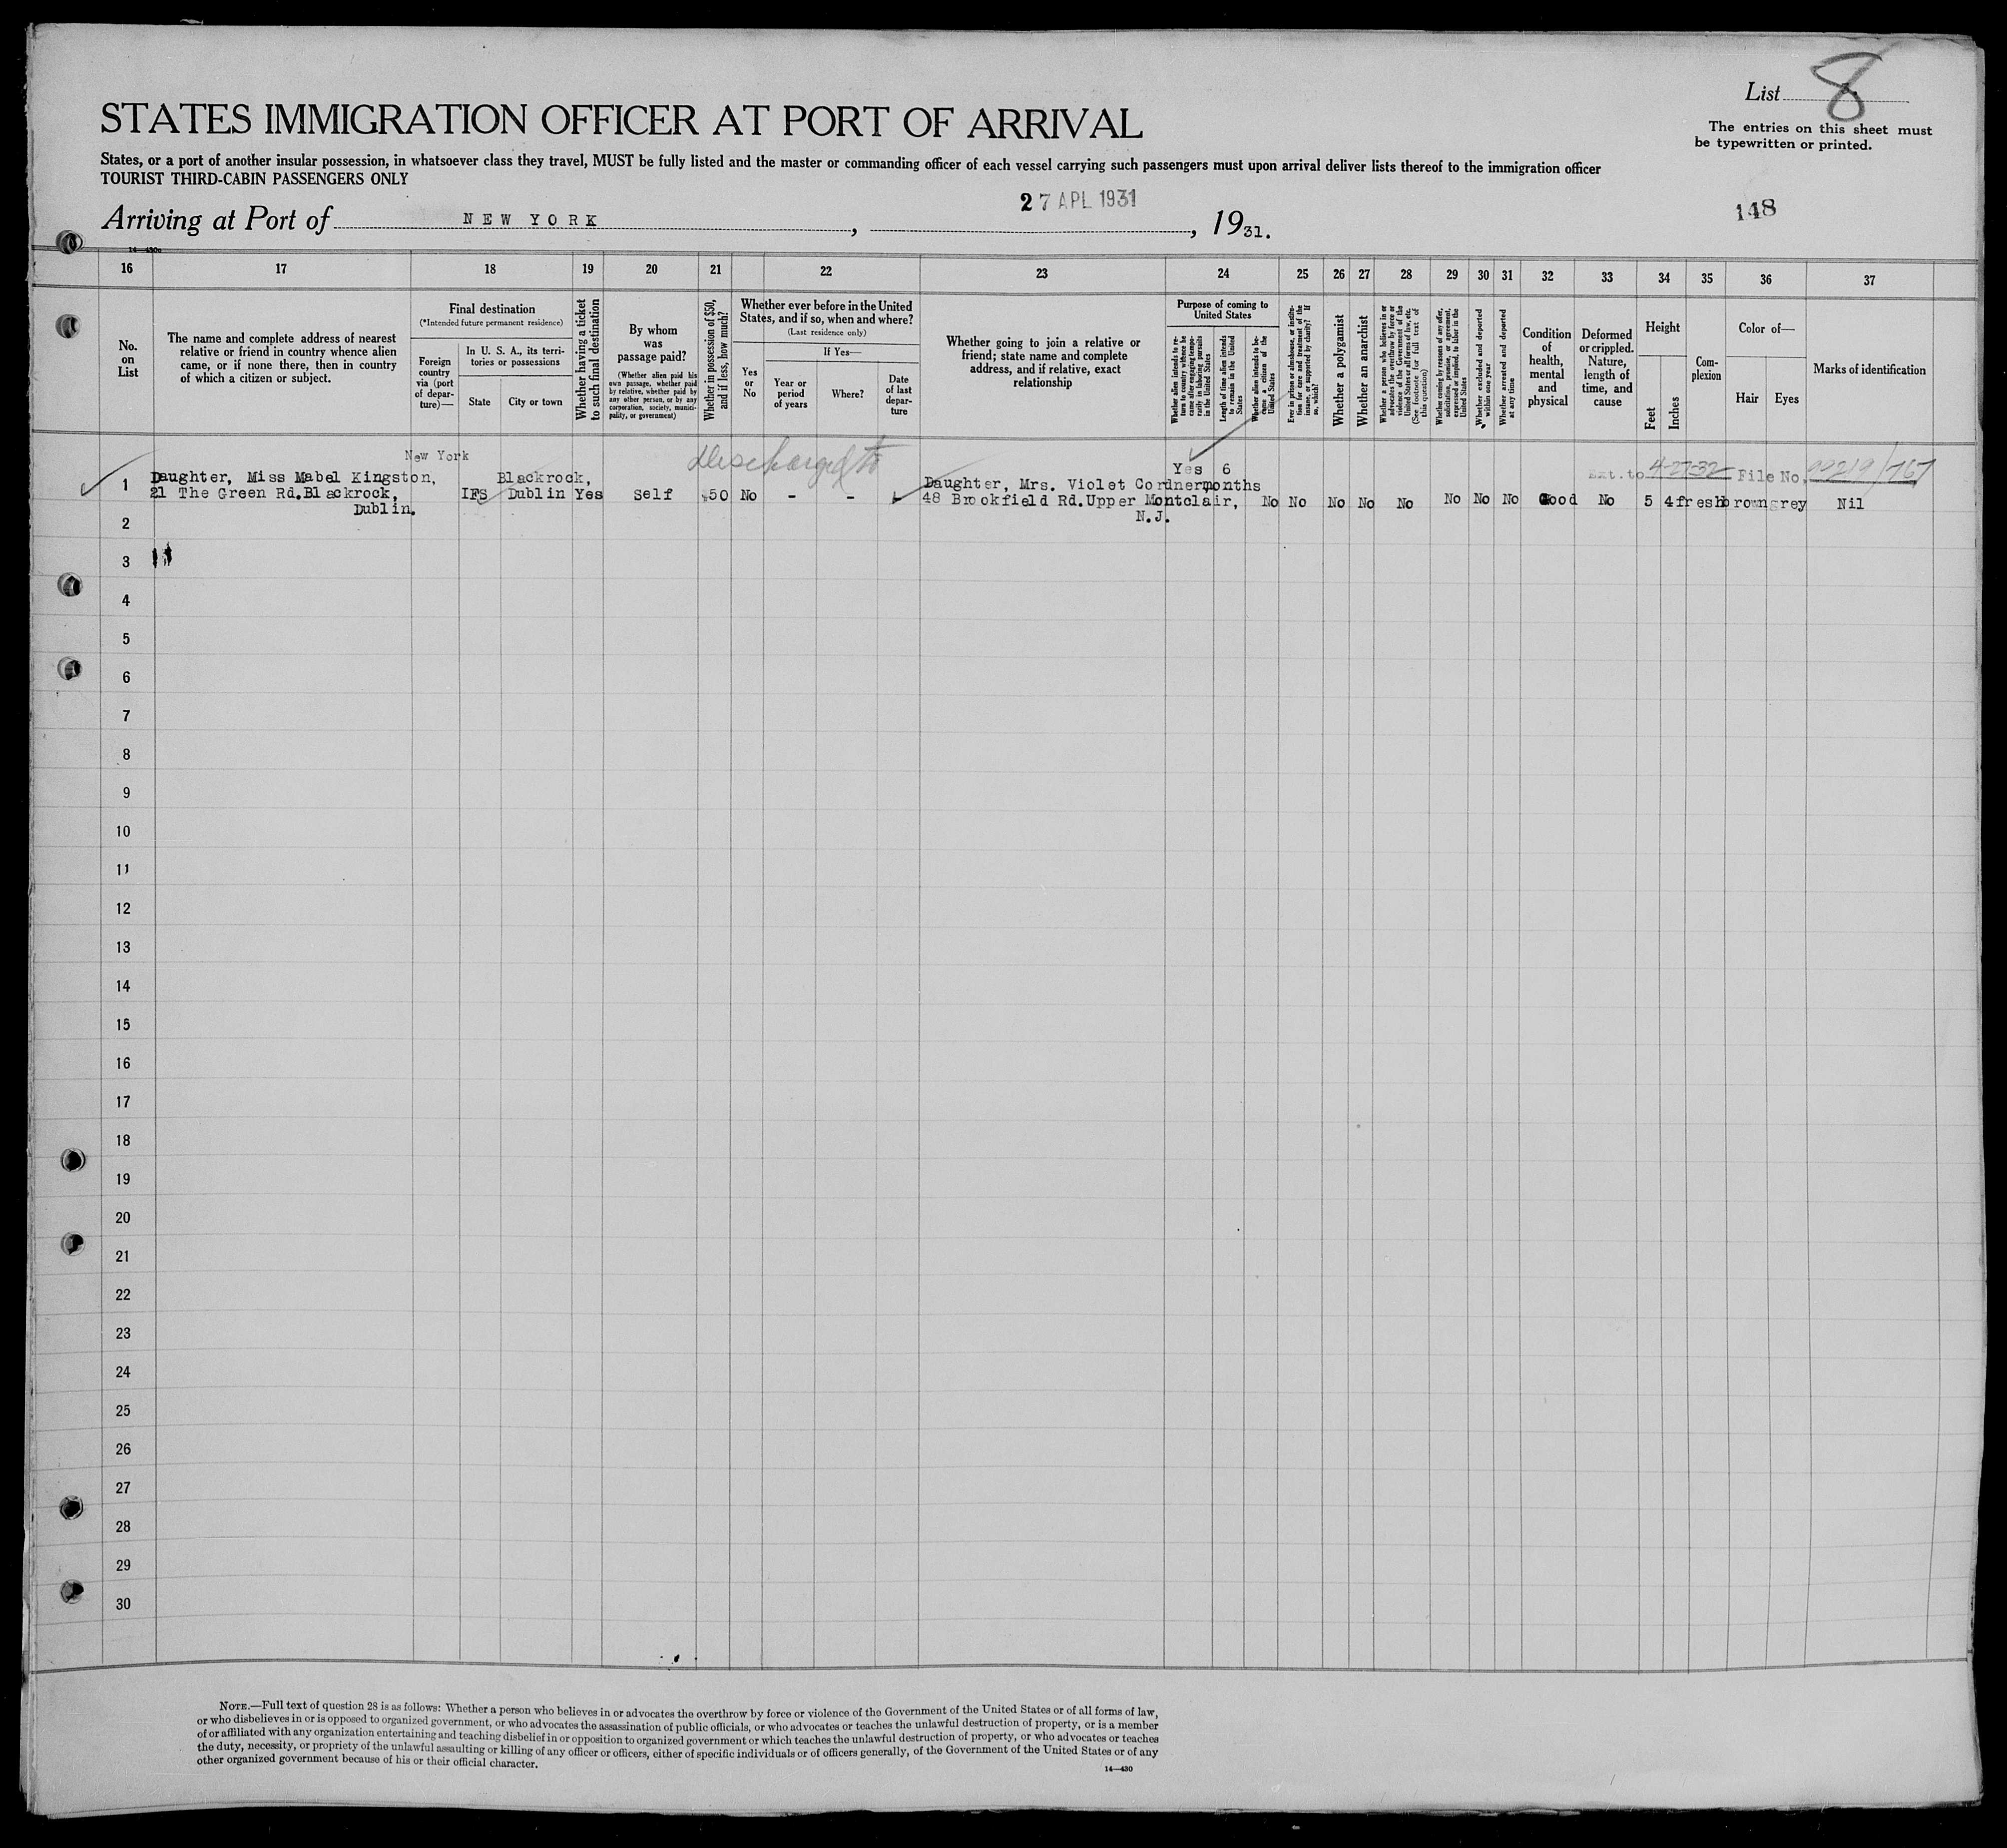 List 8
The entries on this sheet must
be typewritten or printed.
STATES IMMIGRATION OFFICER AT PORT OF ARRIVAL
States, or a port of another insular possession, in whatsoever class they travel, MUST be fully listed and the master or commanding officer of each vessel carrying such passengers must upon arrival deliver lists thereof to the immigration officer
TOURIST THIRD-CABIN PASSENGERS ONLY
27 APL 1931
148
Arriving at Port of NEW YORK, , 1931.
14—430a
16 17 18 19 20 21 22 23 24 25 26 27 28 29 30 31 32 33 34 35 36 37
No.
on
List
The name and complete address of nearest
relative or friend in country whence alien
came, or if none there, then in country
of which a citizen or subject.
Final destination
(*Intended future permanent residence)
Foreign
country
via (port
of depar-
ture)—
In U. S. A., its terri-
tories or possessions
State
City or town
Whether having a ticket
to such final destination
By whom
was
passage paid?
(Whether alien paid his
own passage, whether paid
by relative, whether paid by
any other person, or by any
corporation, society, munici-
pality, or government)
Whether in possession of $50,
and if less, how much?
Whether ever before in the United
States, and if so, when and where?
(Last residence only)
Yes
or
No
If Yes—
Year or
period
of years
Where?
Date
of last
depar-
ture
Whether going to join a relative or
friend; state name and complete
address, and if relative, exact
relationship
Purpose of coming to
United States
Whether alien intends to re-
turn to country whence he
came after engaging tempo-
rarily in laboring pursuits
in the United States
Length of time alien intends
to remain in the United
States
Whether alien intends to be-
come a citizen of the
United States
Ever in prison or almshouse, or institu-
tion for care and treatment of the
insane, or supported by charity? If
so, which?
Whether a polygamist
Whether an anarchist
Whether a person who believes in or
advocates the overthrow by force or
violence of the Government of the
United States or all forms of law, etc.
(See footnote for full text of
this question)
Whether coming by reasons of any offer,
solicitation, promise, or agreement,
expressed or implied, to labor in the
United States
Whether excluded and deported
within one year
Whether arrested and deported
at any time
Condition
of
health,
mental
and
physical
Deformed
or crippled.
Nature,
length of
time, and
cause
Height
Feet
Inches
Com-
plexion
Color of—
Hair
Eyes
Marks of identification
New York Discharged to
Daughter, Miss Mabel Kingston, Blackrock, Daughter, Mrs. Violet Cordner, Yes 6 months Ext. to 4-27-32 File No.
1 21 The Green Rd. Blackrock, IFS Dublin Yes Self $50 No - - 48 Brookfield Rd. Upper Montclair, No No No No No No No No Good No 5 4 fresh brown grey Nil
Dublin. N.J.
2
3
4
5
6
7
8
9
10
11
12
13
14
15
16
17
18
19
20
21
22
23
24
25
26
27
28
29
30
NOTE.—Full text of question 28 is as follows: Whether a person who believes in or advocates the overthrow by force or violence of the Government of the United States or of all forms of law,
or who disbelieves in or is opposed to organized government, or who advocates the assassination of public officials, or who advocates or teaches the unlawful destruction of property, or is a member
of or affiliated with any organization entertaining and teaching disbelief in or opposition to organized government or which teaches the unlawful destruction of property, or who advocates or teaches
the duty, necessity, or propriety of the unlawful assaulting or killing of any officer or officers, either of specific individuals or of officers generally, of the Government of the United States or of any
other organized government because of his or their official character.
14—430